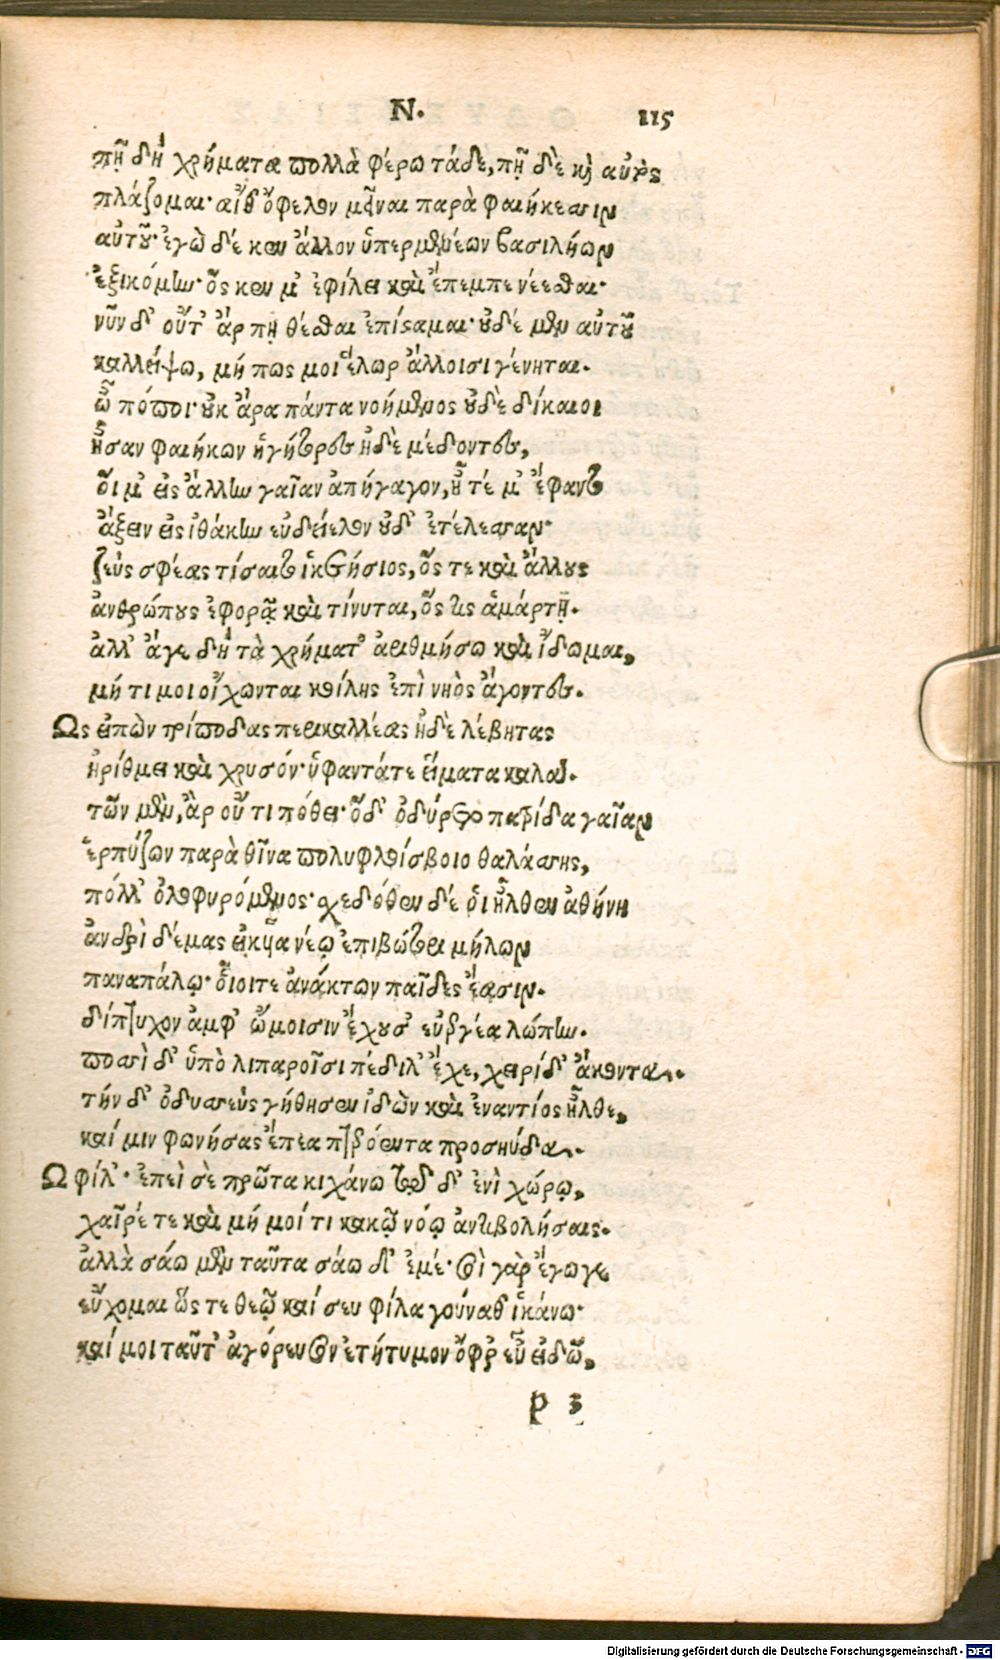 Ν. 115
πῆ δὴ χρήματα πολλὰ φέρω τάδε, πῆ δὲ καὶ αὐτὸς
πλάζομαι· αἴθ' ὄφελον μεῖναι παρὰ φαιήκεσσιν
αὐτοῦ· ἐγὼ δέ κεν ἄλλον ὑπερμενέων βασιλήων
ἐξικόμην· ὅς κεν μ' ἐφίλει καὶ ἔπεμπε νέεσθαι·
νῦν δ' οὔτ' ἄρ πη θέσθαι ἐπίσταμαι· οὐδὲ μὲν αὐτοῦ
καλλείψω, μή πως μοι ἕλωρ ἄλλοισι γένηται.
ὢ πόποι· οὐκ ἄρα πάντα νοήμονος οὐδὲ δίκαιοι
ἦσαν φαιήκων ἡγήτορες ἠδὲ μέδοντες,
οἵ μ' εἰς ἄλλην γαῖαν ἀπήγαγον, ἦ τέ μ' ἔφαντο
ἄξειν εἰς ἰθάκην εὐδείελον οὐδ' ἐτέλεσσαν·
ζεύς σφέας τίσαιτο ἱκετήσιος, ὅς τε καὶ ἄλλους
ἀνθρώπους ἐφορᾷ καὶ τίνυται, ὅς τις ἁμάρτῃ.
ἀλλ' ἄγε δὴ τὰ χρήματ' ἀριθμήσω καὶ ἴδωμαι,
μή τι μοι οἴχωνται κοίλης ἐπὶ νηὸς ἄγοντες.
Ὣς εἰπὼν τρίποδας περικαλλέας ἠδὲ λέβητας
ἠρίθμει καὶ χρυσόν· ὑφαντά τε εἵματα καλά.
τῶν μὲν, ἂρ οὔ τι πόθει· ὅδ' ὀδύρετο πατρίδα γαῖαν
ἑρπύζων παρὰ θῖνα πολυφλοίσβοιο θαλάσσης,
πόλλ' ὀλοφυρόμενος· σχεδόθεν δέ οἱ ἦλθεν ἀθήνη
ἀνδρὶ δέμας εἰκυῖα νέῳ ἐπιβώτορι μήλων
παναπάλῳ· οἷοι τε ἀνάκτων παῖδες ἔασιν.
δίπτυχον ἀμφ' ὤμοισιν ἔχουσ' εὐεργέα λώπην.
ποσσὶ δ' ὑπὸ λιπαροῖσι πέδιλ' ἔχε, χειρὶ δ' ἄκοντα.
τὴν δ' ὀδυσσεὺς γήθησεν ἰδὼν καὶ ἐναντίος ἦλθε,
καί μιν φωνήσας ἔπεα πτερόεντα προσηύδα.
Ὦ φίλ'· ἐπεὶ σὲ πρῶτα κιχάνω τῷδ' ἐνὶ χώρῳ,
χαῖρέ τε καὶ μή μοί τι κακῷ νόῳ ἀντιβολήσαις.
ἀλλὰ σάω μὲν ταῦτα σάω δ' ἐμέ· σοὶ γὰρ ἔγωγε
εὔχομαι ὥς τε θεῷ καί σευ φίλα γούναθ' ἱκάνω·
καί μοι ταῦτ' ἀγόρευσον ἐτήτυμον ὄφρ' εὖ εἰδῶ,
p 3
Digitalisierung gefördert durch die Deutsche Forschungsgemeinschaft - DFG